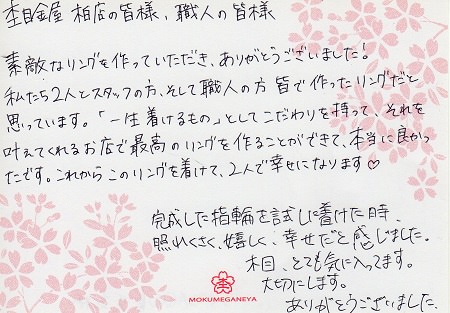 杢目金屋 柏店の皆様、職人の皆様
素敵なリングを作っていただき、ありがとうございました!
私たち2人とスタッフの方、そして職人の方 皆で作ったリングだと
思っています。「一生着けるもの」としてこだわりを持って、それを
叶えてくれるお店で最高のリングを作ることができて、本当に良かっ
たです。これからこのリングを着けて、2人で幸せになります♡
完成した指輪を試しに着けた時、
照れくさく、嬉しく、幸せだと感じました。
木目、とても気に入ってます。
大切にします。
ありがとうございました。
MOKUMEGANEYA